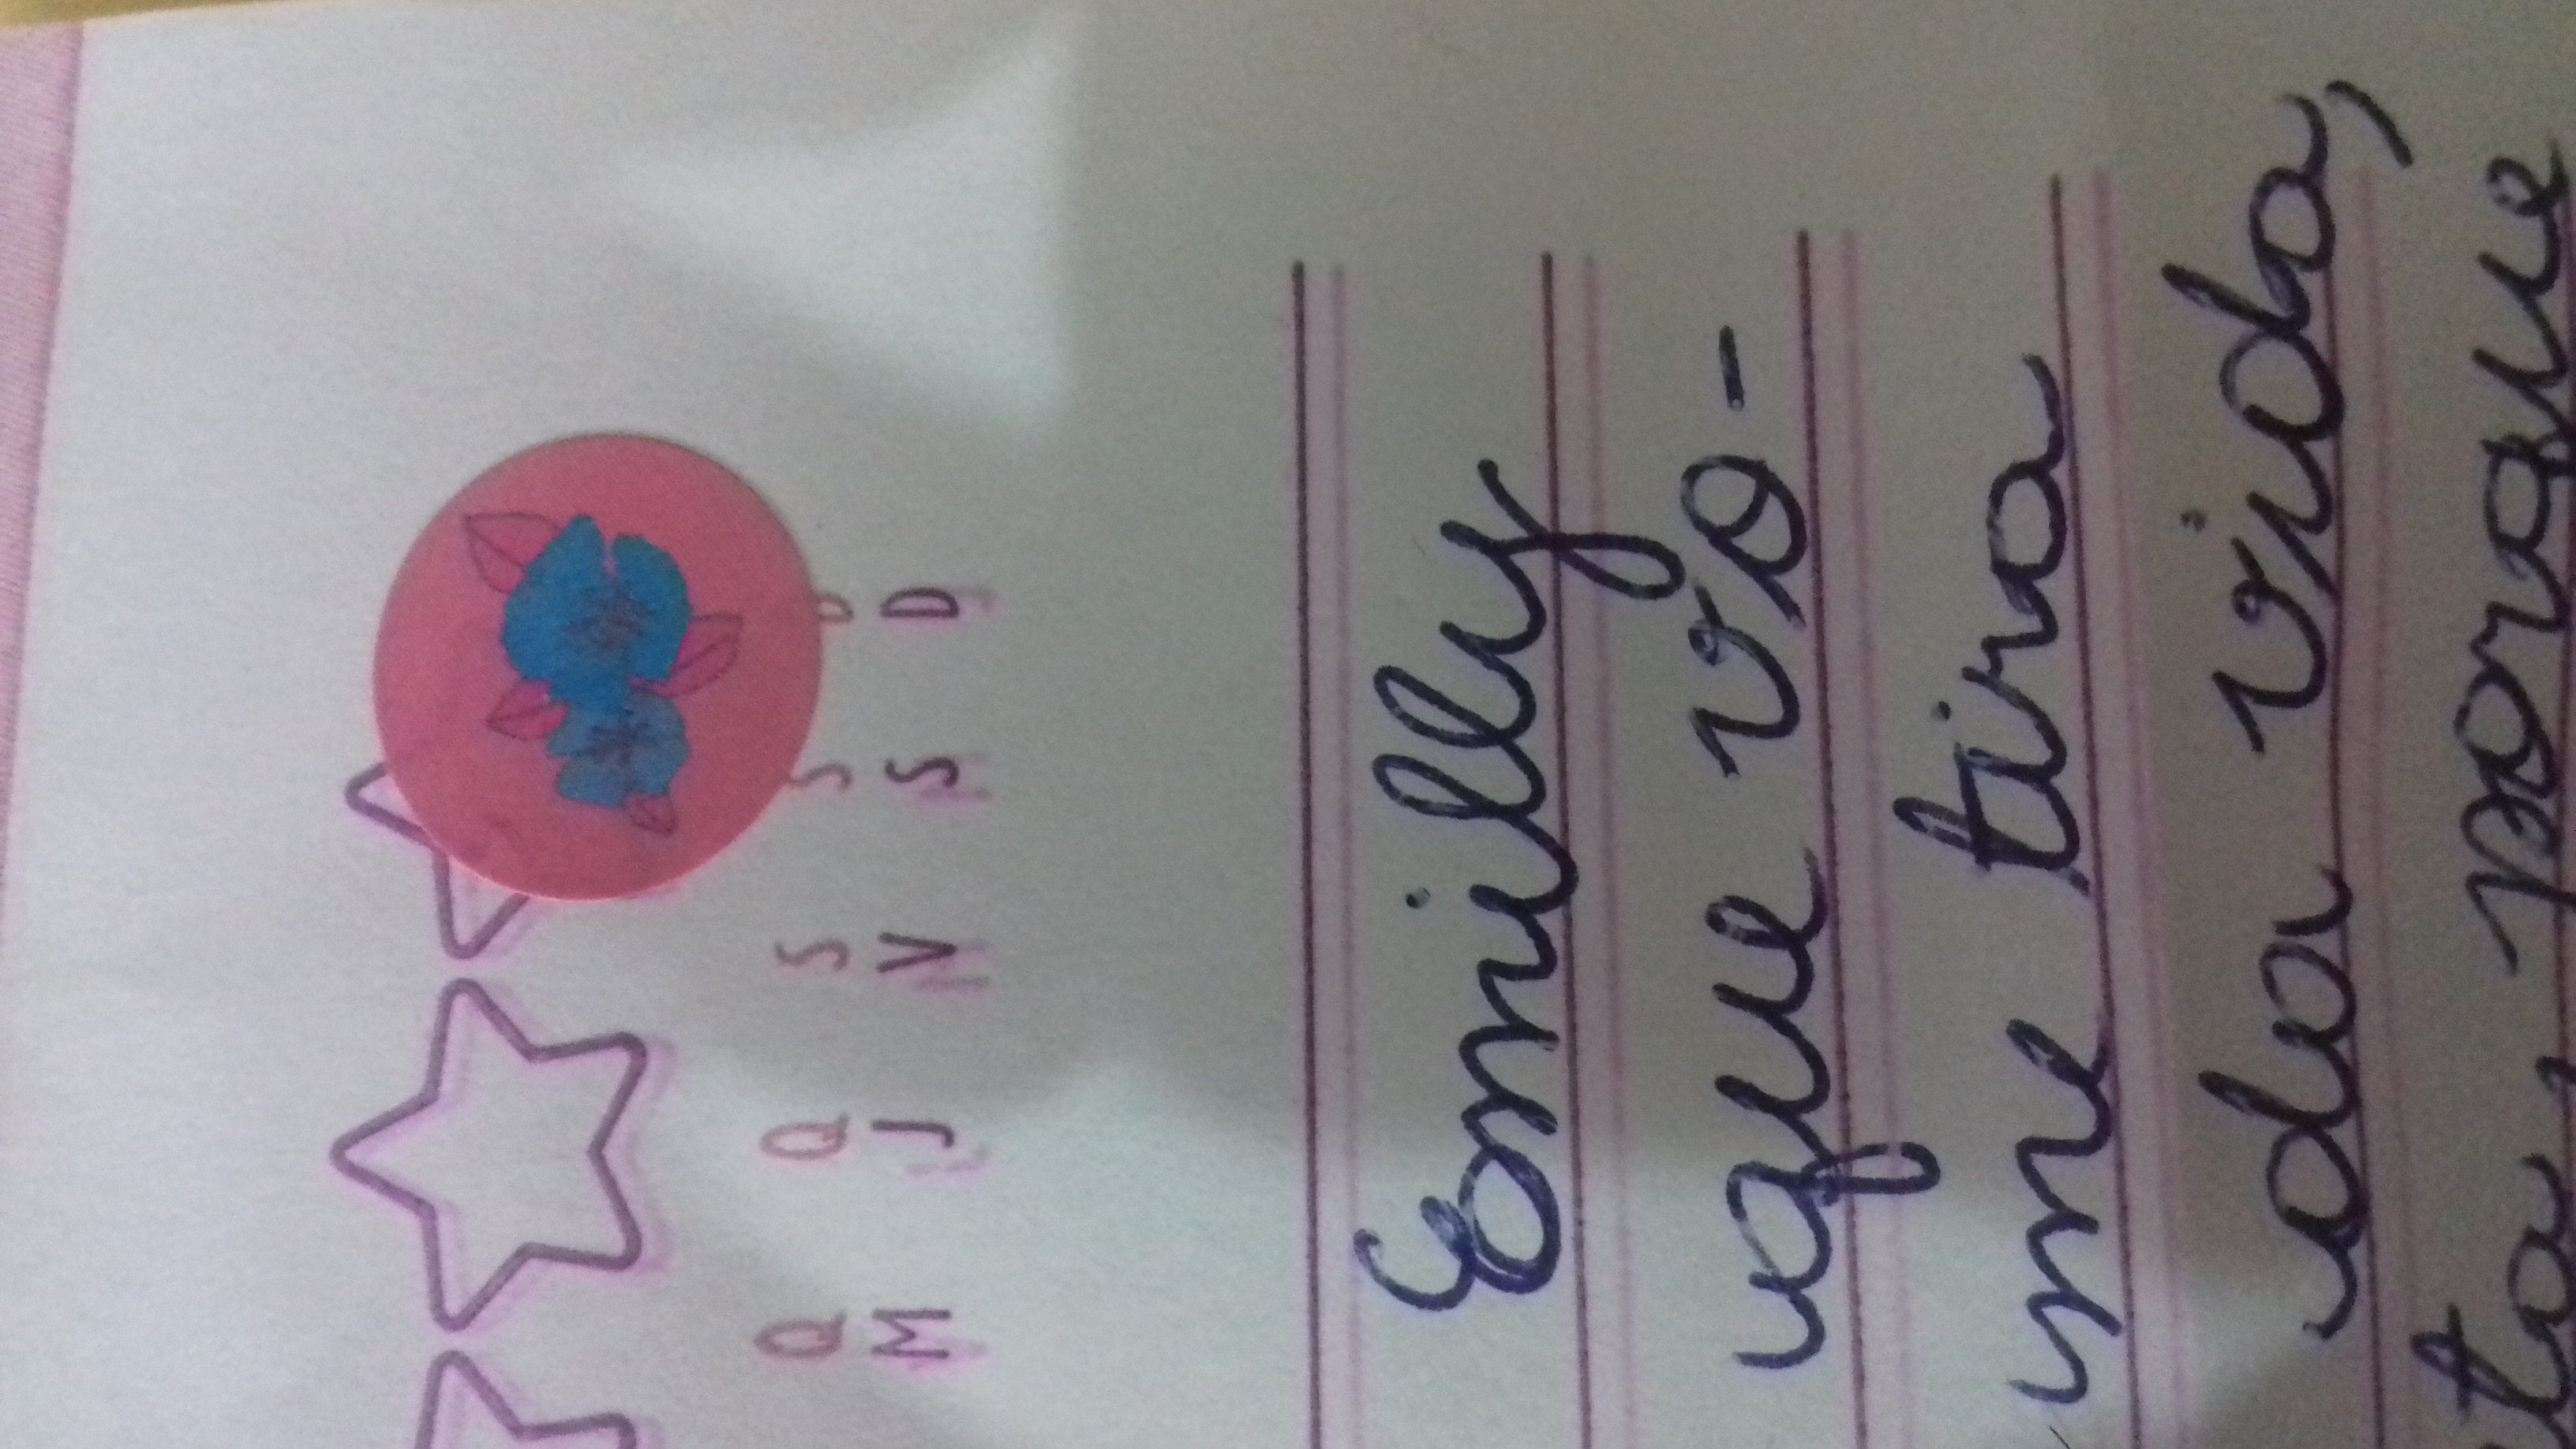 Q Q S S D
M J V S D
Emilly
que vo-
me tira
da vida,
ta, porque